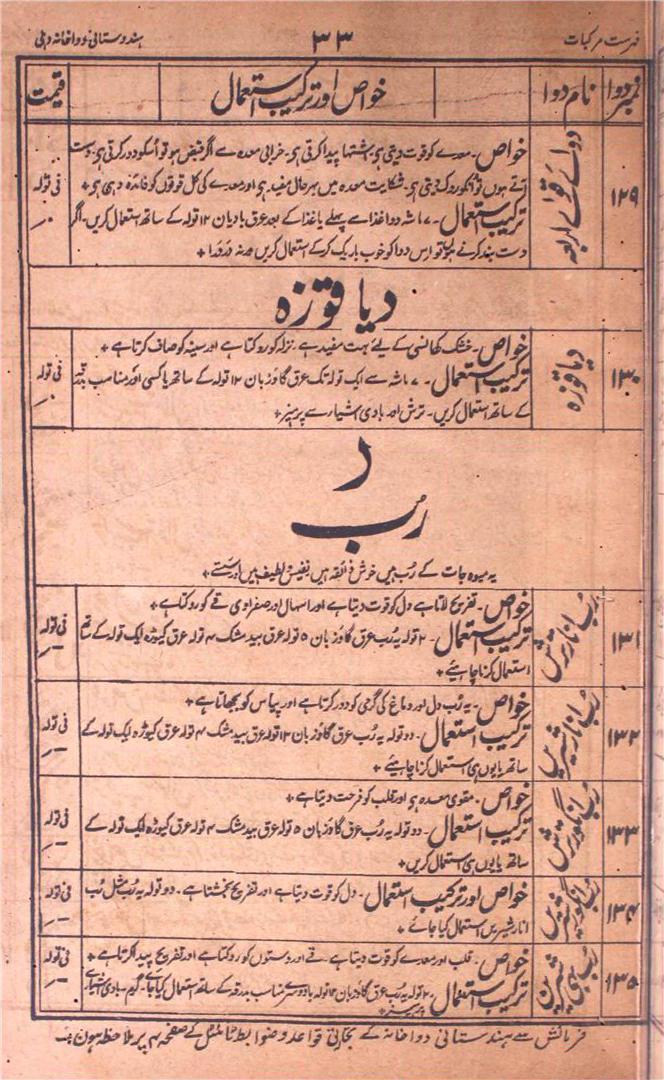 فہرست مرکبات ۳۳ ہندوستانی دواخانہ دہلی
نمبر دوا نام دوا خواص اور ترکیب استعمال قیمت
۱۲۹ خواص۔ معدے کو قوت دیتی ہی۔ اشتہا پیدا کرتی ہی۔ خرابی معدہ سے اگر قبض ہو تو اُسکو دور کرتی ہی۔ دست
آتے ہوں تو اُنکو روک دیتی ہی۔ شکایت معدہ میں بہرحال مفید ہی اور معدے کی کل قوتوں کو فائدہ دیتی ہی + فی تولہ
ترکیب استعمال۔ ۷ ماشہ دوا غذا سے پہلے یا غذا کے بعد عرق بادیان ۱۲ تولہ کے ساتھ استعمال کریں۔ اگر
دست بند کرنے ہوں تو اس دوا کو خوب باریک کرکے استعمال کریں ورنہ دَردَرا +
دیاقوزہ
۱۳۰ دیاقوزہ خواص۔ خشک کھانسی کے لیے بہت مفید ہے۔ نزلہ کو روکتا ہے اور سینہ کو صاف کرتا ہے +
ترکیب استعمال۔ ۷ ماشہ سے ایک تولہ تک عرق گاؤزبان ۱۲ تولہ کے ساتھ یا کسی اور مناسب بدرقہ فی تولہ
کے ساتھ استعمال کریں۔ ترش اور بادی اشیاء سے پرہیز +
ر
رُب
یہ میوہ جات کے رُب ہیں خوش ذائقہ ہیں نفیس لطیف ہیں اور سستے +
۱۳۱ رُب انار ترش خواص۔ تفریح لاتا ہے دل کو قوت دیتا ہے اور اسہال اور صفراوی قے کو روکتا ہے +
ترکیب استعمال۔ ۲ تولہ یہ رُب عرق گاؤزبان ۵ تولہ عرق بیدمشک ۴ تولہ عرق کیوڑہ ایک تولہ کے ساتھ فی تولہ
استعمال کرنا چاہیئے +
۱۳۲ رُب انار شیریں خواص۔ یہ رُب دل اور دماغ کی گرمی کو دور کرتا ہے اور پیاس کو بجھاتا ہے +
ترکیب استعمال۔ دو تولہ یہ رُب عرق گاؤزبان ۱۲ تولہ عرق بیدمشک ۴ تولہ عرق کیوڑہ ایک تولہ کے فی تولہ
ساتھ یا یوں ہی استعمال کرنا چاہیئے +
۱۳۳ رُب انگور ترش خواص۔ مقوی معدہ ہی اور قلب کو فرحت دیتا ہے +
ترکیب استعمال۔ دو تولہ یہ رُب عرق گاؤزبان ۵ تولہ عرق بیدمشک ۴ تولہ عرق کیوڑہ ایک تولہ کے فی تولہ
ساتھ یا یوں ہی استعمال کریں +
۱۳۴ رُب انگور شیریں خواص اور ترکیب استعمال۔ دل کو قوت دیتا ہے اور تفریح بخشتا ہے۔ دو تولہ یہ رُب مثل رُب فی تولہ
انار شیریں استعمال کیا جائے +
۱۳۵ رُب بہی شیریں خواص۔ قلب اور معدے کو قوت دیتا ہے۔ قے اور دستوں کو روکتا ہے اور تفریح پیدا کرتا ہے + فی تولہ
ترکیب استعمال۔ ۲ تولہ یہ رُب عرق گاؤزبان ۱۲ تولہ یا دوسرے مناسب بدرقہ کے ساتھ استعمال کیا جائے۔ گرم۔ بادی اشیاء سے پرہیز +
فرمائش سے ہندستانی دواخانہ کے تجارتی قواعد و ضوابط ٹائٹل کے صفحہ ۴ پر ملاحظہ ہوں